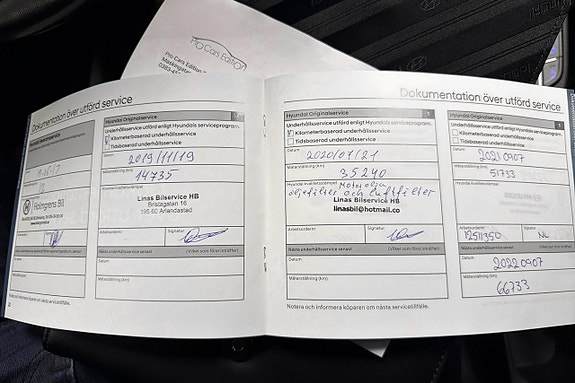 Pro Cars Edition
Pro Cars Edition
Dokumentation över utförd service
Holmgrens Bil
Hyundai Originalservice
Underhållsservice utförd enligt Hyundais serviceprogram.
Kilometerbaserad underhållsservice
Tidsbaserad underhållsservice
Datum
2019/11/19
Mätarställning (km)
14735
Linas Bilservice HB
Bristagatan 16
195 60 Arlandastad
Arbetsordernr
Signatur
Nästa underhållsservice senast
Datum
Mätarställning (km)
Dokumentation över utförd service
Hyundai Originalservice
Underhållsservice utförd enligt Hyundais serviceprogram.
Kilometerbaserad underhållsservice
Tidsbaserad underhållsservice
Datum
2020/01/21
Mätarställning (km)
35240
Motorolja
oljefilter och luftfilter
Linas Bilservice HB
linasbil@hotmail.co
Arbetsordernr
Signatur
Nästa underhållsservice senast
Datum
Mätarställning (km)
Notera och informera köparen om nästa servicetillfälle.
Hyundai Originalservice
Underhållsservice utförd enligt Hyundais serviceprogram.
Kilometerbaserad underhållsservice
Tidsbaserad underhållsservice
Datum
20210907
Mätarställning (km)
51733
Arbetsordernr
Signatur
12511350
NL
Nästa underhållsservice senast
Datum
20220907
Mätarställning (km)
66733